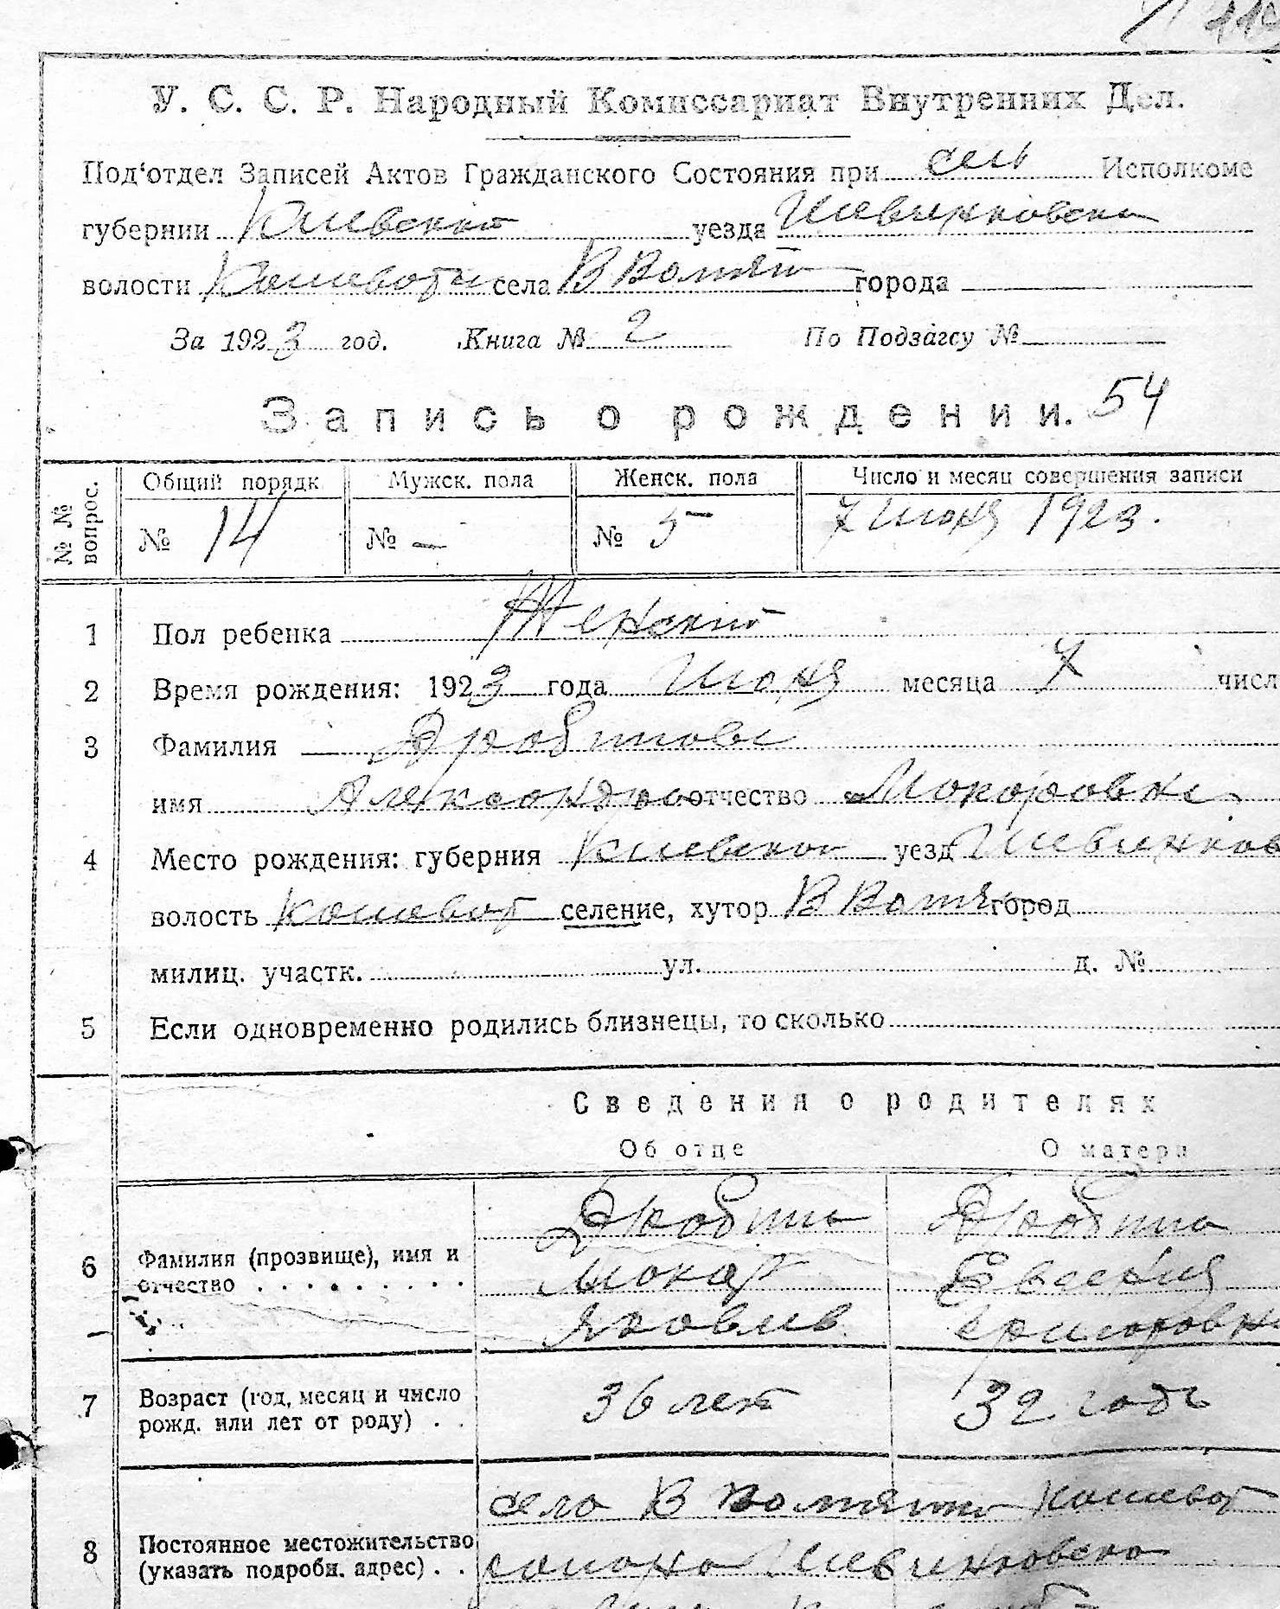 У. С. С. Р. Народный Комиссариат Внутренних Дел.
Под'отдел Записей Актов Гражданского Состояния при сель Исполкоме
губернии Киевской уезда Шевченковско
волости Кошеват села В Вотяги города
За 1923 год. Книга № 2 По Подзагсу №
Запись о рождении. 54
№ № вопрос. Общий порядк. Мужск. пола Женск. пола Число и месяц совершения записи
№ 14 № — № 5 7 июня 1923.
1 Пол ребенка Женский
2 Время рождения: 1923 года июня месяца 7 числ
3 Фамилия
имя Александра отчество Макаровна
4 Место рождения: губерния Киевской уезд Шевченков
волость Кошеват селение, хутор В город
милиц. участк. ул. д. №
5 Если одновременно родились близнецы, то сколько
Сведения о родителях
Об отце О матери
6 Фамилия (прозвище), имя и отчество
Макар
Яковлев Григоровна
7 Возраст (год, месяц и число рожд. или лет от роду) 36 лет 32 года
8 Постоянное местожительство (указать подробн. адрес)
село В Кошеват
Шевченковско